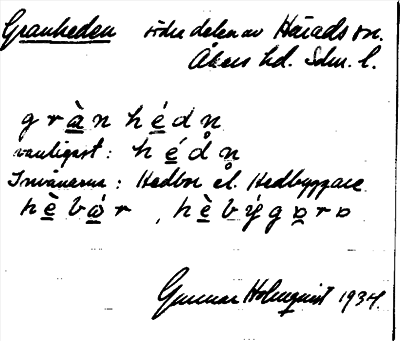 Granheden södra delen av Härads sn.
Åkers hd. Sdm. l.
gràn hédn̥
vanligast: hédn̥
Invånarna: Hedbor el. Hedbyggare
hèbår, hèbýgara
Gunnar Holmquist 1934.